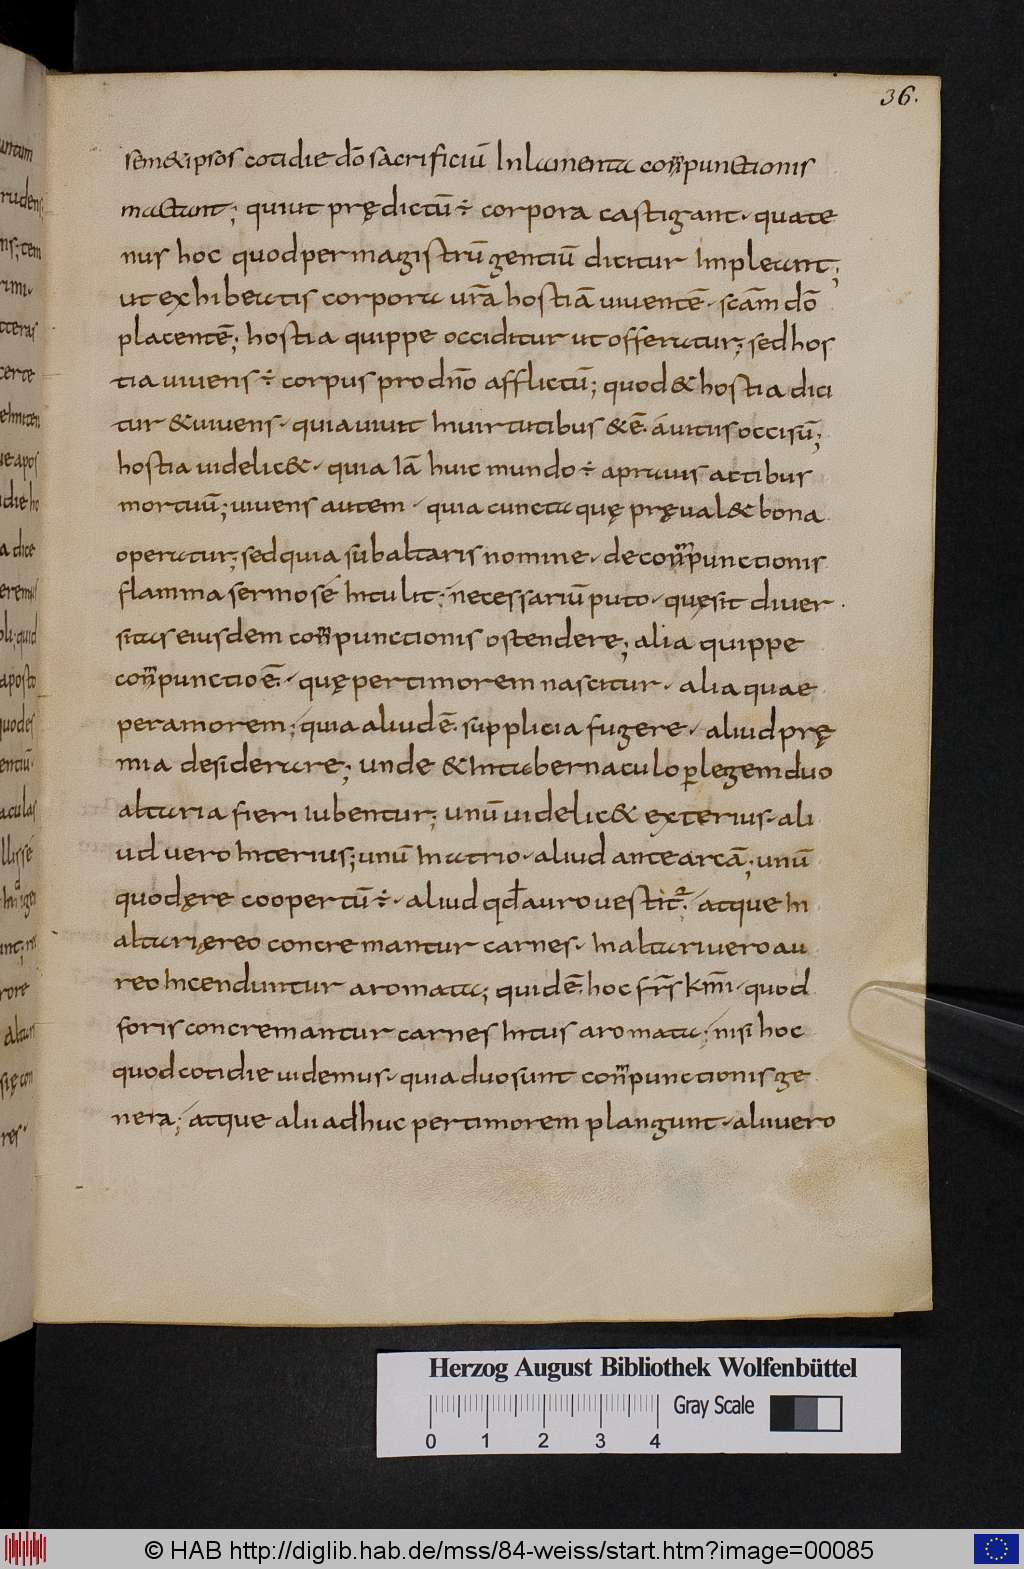 36.
sem&ipsos cotidie dō sacrificiū In lamenta con̄punctionis
mactant; quiut prędictū ÷ corpora castigant. quate
nus hoc quod per magistrū gentiū dicitur Impleant;
ut exhibeatis corpora ur̄a hostiā uiuentē. sc̄am dō
placentē; hostia quippe occiditur ut offeratur; sed hos
tia uiuens ÷ corpus pro dn̄o afflictū; quod & hostia dici
tur & uiuens. quia uiuit Inuirtutibus & ē. áuitiis occisū;
hostia uidelic&. quia Iā huic mundo ÷ aprauis actibus
mortuū; uiuens autem. quia cuncta quę pręual& bona
operatur; sed quia sub altaris nomine. de con̄punctionis
flamma sermo sé Intulit; necessariū puto. quę sit diuer
sitas eiusdem con̄punctionis ostendere; alia quippe
con̄punctio ē. quę per timorem nascitur. alia quae
per amorem; quia aliud ē. supplicia fugere. aliud prę
mia desiderare; unde & Intabernaculo ꝑ legem duo
altaria fieri iubentur; unū uidelic& exterius. ali
ud uero Interius; unū Inatrio. aliud ante arcā; unū
quod ęre coopertū ÷. aliud qđ auro uestit᷑. atque In
altari ęreo concremantur carnes. Inaltari uero au
reo Incenduntur aromata; quid ē. hoc fr̄s km̄i. quod
foris concremantur carnes Intus aromata; nisi hoc
quod cotidie uidemus. quia duo sunt con̄punctionis ge
nera; atque alii adhuc per timorem plangunt. alii uero
Herzog August Bibliothek Wolfenbüttel
Gray Scale
0 1 2 3 4
© HAB http://diglib.hab.de/mss/84-weiss/start.htm?image=00085